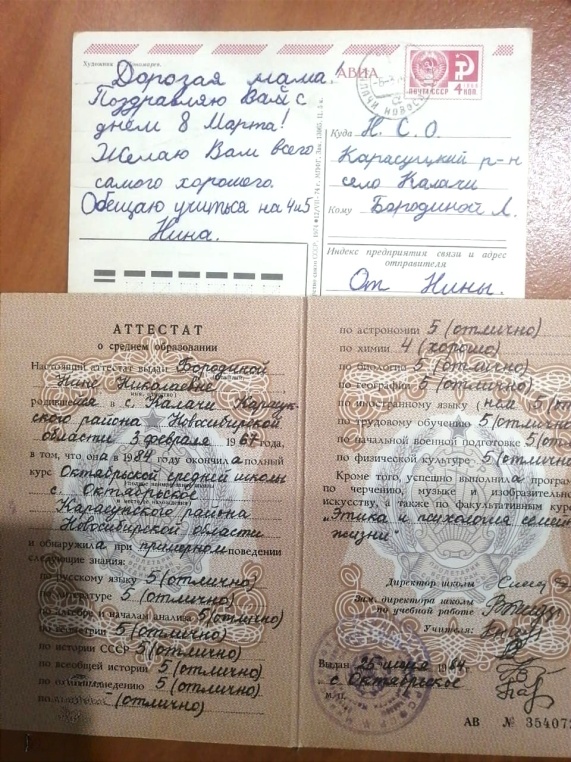 Художник Пономарев.
Дорогая мама!
Поздравляю Вай с
днём 8 Марта!
Желаю Вам всего
самого хорошего.
Обещаю учиться на 4 и 5
Нина.
АВИА
ПОЧТА СССР
4 КОП
Куда Н. С. О.
Карасукский р-н
село Калачи
Кому Бородиной Л.
Индекс предприятия связи и адрес
отправителя
От Нины.
АТТЕСТАТ
о среднем образовании
Настоящий аттестат выдан Бородиной
Нине Николаевне
родившейся в с. Калачи Карасук-
ского района Новосибирской
области 3 февраля 1967 года,
в том, что она в 1984 году окончила полный
курс Октябрьской средней школы
с. Октябрьское
Карасукского района
Новосибирской области
и обнаружила при примерном поведении
следующие знания:
по русскому языку 5 (отлично)
по литературе 5 (отлично)
по алгебре и началам анализа 5 (отлично)
по геометрии 5 (отлично)
по истории СССР 5 (отлично)
по всеобщей истории 5 (отлично)
по обществоведению 5 (отлично)
по физике 5 (отлично)
по астрономии 5 (отлично)
по химии 4 (хорошо)
по биологии 5 (отлично)
по географии 5 (отлично)
по иностранному языку 5
по трудовому обучению 5 (отлично)
по начальной военной подготовке 5
по физической культуре 5 (отлично)
Кроме того, успешно выполнила
по черчению, музыке и
искусству, а также по факультативным
"Этика и психология
жизни"
Директор школы
Зам. директора школы
по учебной работе
Учителя:
Выдан 25 июня 1984
с. Октябрьское
М. П.
АВ № 354072